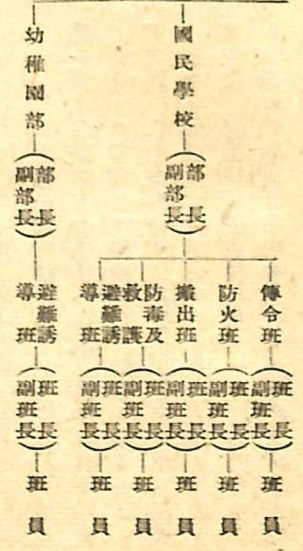 國民學校
(部長 副部長)
傳令班
(班長 副班長)
班員
防火班
(班長 副班長)
班員
搬出班
(班長 副班長)
班員
防毒及救護班
(班長 副班長)
班員
避難誘導班
(班長 副班長)
班員
幼稚園部
(部長 副部長)
避難誘導班
(班長 副班長)
班員